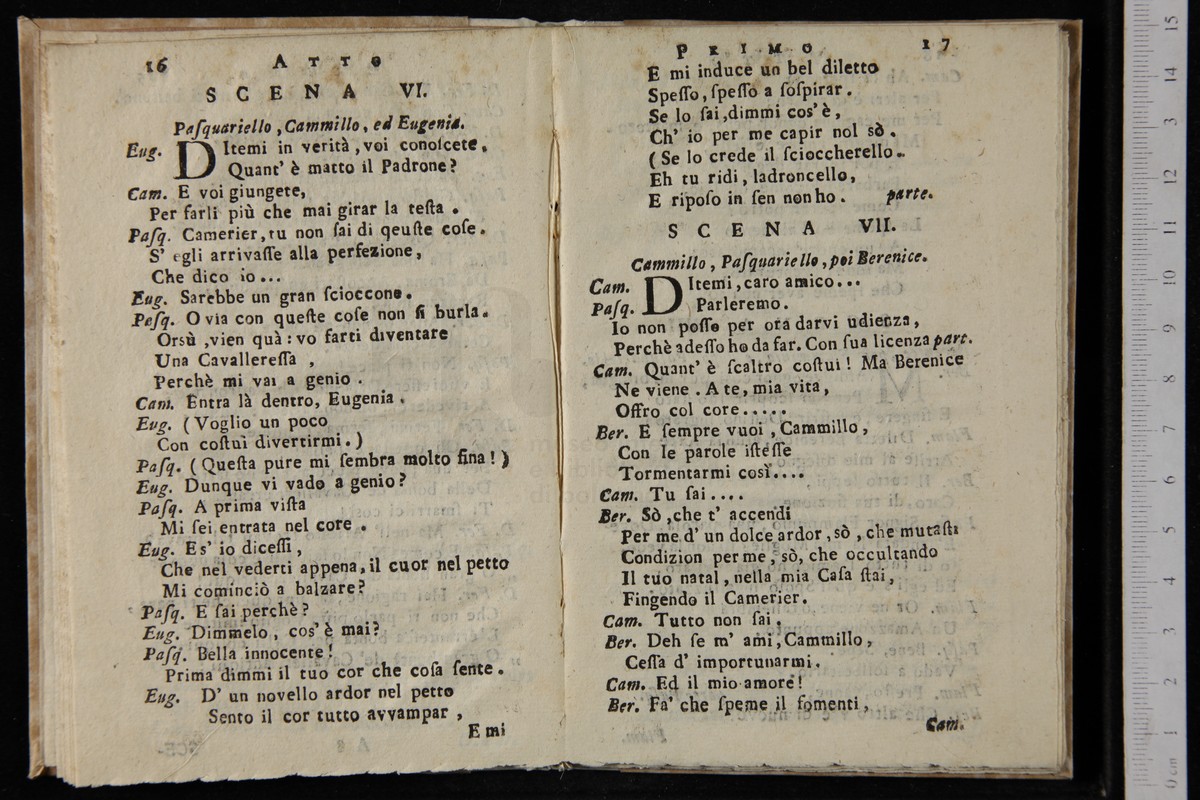 16 ATTO
SCENA VI.
Paſquariello, Cammillo, ed Eugenia.
Eug. DItemi in verità, voi conoſcete,
Quant' è matto il Padrone?
Cam. E voi giungete,
Per farli più che mai girar la teſta.
Paſq. Camerier, tu non ſai di qeuſte coſe.
S' egli arrivaſſe alla perfezione,
Che dico io...
Eug. Sarebbe un gran ſcioccone.
Peſq. O via con queſte coſe non ſi burla.
Orsù, vien quà: vo farti diventare
Una Cavallereſſa,
Perchè mi vai a genio.
Cam. Entra là dentro, Eugenia.
Eug. (Voglio un poco
Con coſtui divertirmi.)
Paſq. (Queſta pure mi ſembra molto fina!)
Eug. Dunque vi vado a genio?
Paſq. A prima viſta
Mi ſei entrata nel core.
Eug. E s' io diceſſi,
Che nel vederti appena, il cuor nel petto
Mi cominciò a balzare?
Paſq. E ſai perchè?
Eug. Dimmelo, cos' è mai?
Paſq. Bella innocente!
Prima dimmi il tuo cor che coſa ſente.
Eug. D' un novello ardor nel petto
Sento il cor tutto avvampar,
E mi
PRIMO. 17
E mi induce un bel diletto
Speſſo, ſpeſſo a ſoſpirar.
Se lo ſai, dimmi cos' è,
Ch' io per me capir nol sò.
(Se lo crede il ſcioccherello.
Eh tu ridi, ladroncello,
E ripoſo in ſen non ho. parte.
SCENA VII.
Cammillo, Paſquariello, poi Berenice.
Cam. DItemi, caro amico...
Paſq. Parleremo.
Io non poſſo per ora darvi udienza,
Perchè adeſſo ho da far. Con ſua licenza part.
Cam. Quant' è ſcaltro coſtui! Ma Berenice
Ne viene. A te, mia vita,
Offro col core.....
Ber. E ſempre vuoi, Cammillo,
Con le parole iſteſſe
Tormentarmi così....
Cam. Tu ſai....
Ber. Sò, che t' accendi
Per me d' un dolce ardor, sò, che mutaſti
Condizion per me, sò, che occultando
Il tuo natal, nella mia Caſa ſtai,
Fingendo il Camerier.
Cam. Tutto non ſai.
Ber. Deh ſe m' ami, Cammillo,
Ceſſa d' importunarmi.
Cam. Ed il mio amore!
Ber. Fa' che ſpeme il fomenti,
Cam.
15
14
3
12
11
10
9
8
7
6
5
4
3
2
1
0 cm